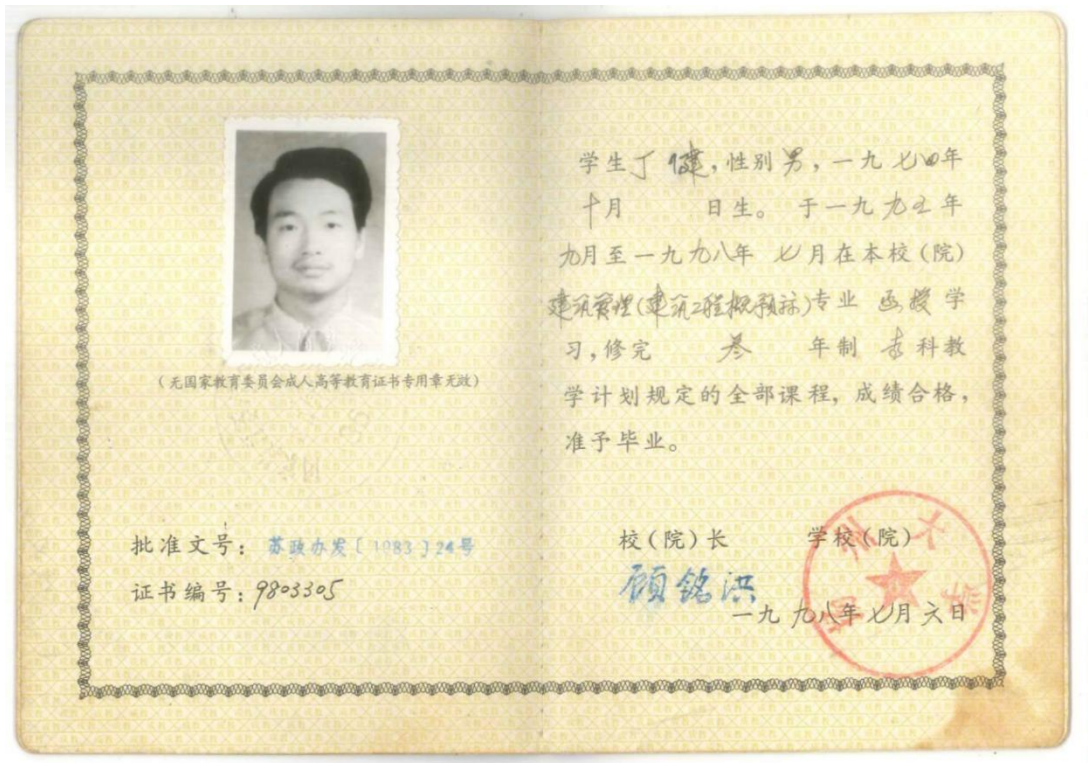 (无国家教育委员会成人高等教育证书专用章无效)
批准文号: 苏政办发〔1983〕24号
证书编号: 9803305
学生丁健,性别男,一九七四年
十月 日生。于一九九五年
九月至一九九八年 七月在本校(院)
建筑管理(建筑工程概预标)专业 函授学
习,修完 叁 年制 专科教
学计划规定的全部课程,成绩合格,
准予毕业。
校(院)长 学校(院)
顾铭洪
一九九八年七月六日
扬州大学